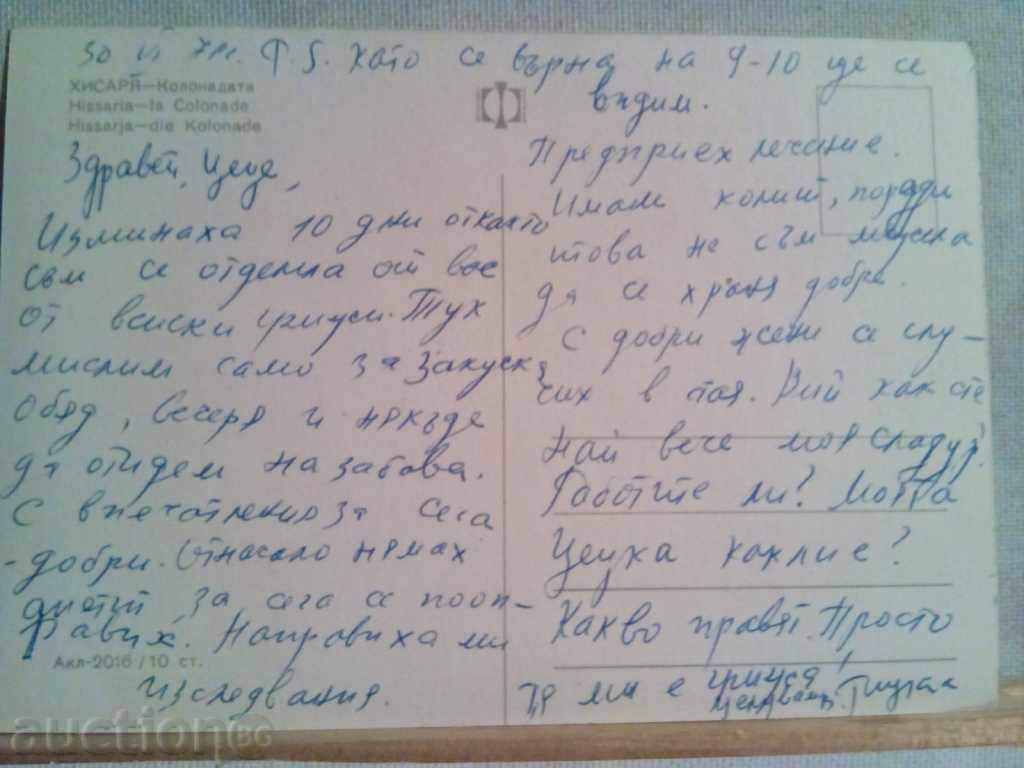 30 VI P.S. Като се върна на 9-10 ще се
видим.
ХИСАРЯ—Колонадата
Hissaria—la Colonade
Hissarja—die Kolonade
Здравей, Цеце,
Изминаха 10 дни откакто
съм се отделила от вас
от всиски грижи. Тук
мислим само за закуска,
обяд, весеря и някъде
да отидем на забава.
С впечатления за сега
-добри. Отнасало нямах
за сега се пооп-
равих. Направиха ми
изследвания.
Предприех лечение.
Имам колит, поради
това не съм
да се храня добре.
С добри жени се слу-
сих в стая. Вий как сте
най вече моя сладур?
Работите ли? Моята
Цецка как е?
Какво правят. Просто
ми е
Акл-2016/10 ст.